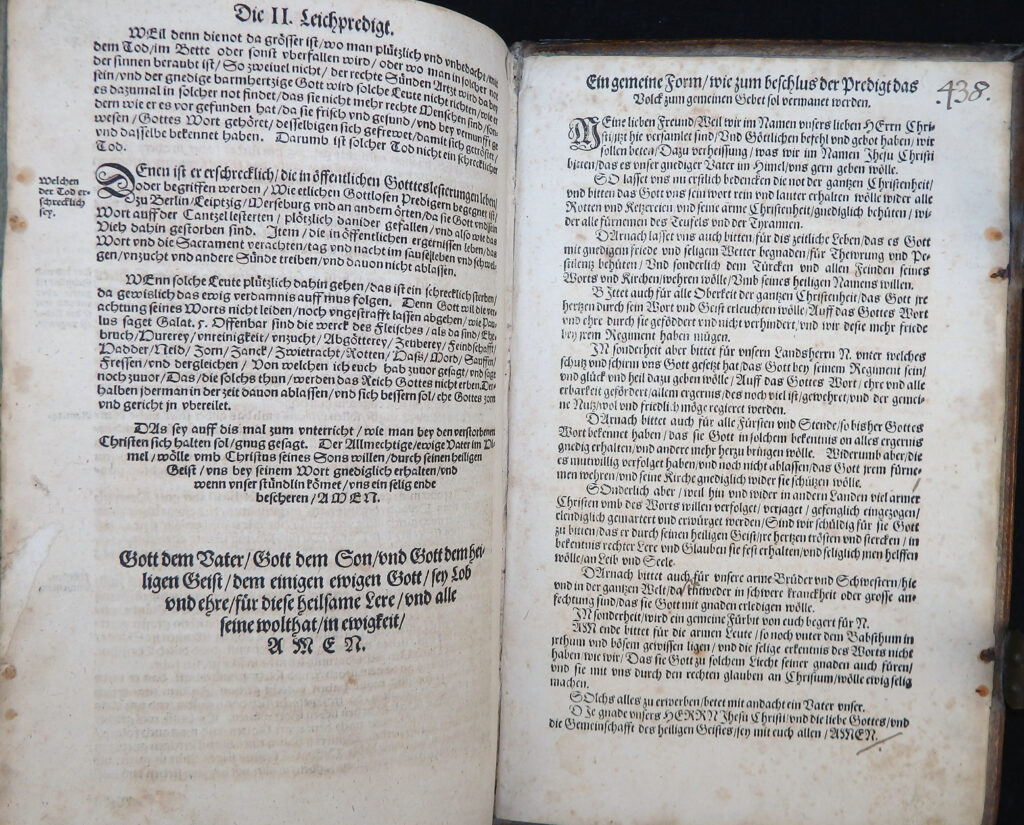 Die II. Leichpredigt.
WEil denn die not da grösser ist/wo man plützlich vnd vnbedacht/mit
dem Tod/im Bette oder sonst vberfallen wird/oder wo man in solcher not
der sinnen beraubt ist/So zweiuel nicht/der rechte Sünden Artzt wird da bey
sein/vnd der gnedige barmhertzige Gott wird solche Leute nicht richten/wie er
es dazumal in solcher not findet/das sie nicht mehr rechte Menschen sind/son-
dern wie er es vor gefunden hat/da sie frisch vnd gesund/vnd bey vernunfft ge
wesen/Gottes Wort gehöret/desselbigen sich gefrewet/damit sich getröstet/
vnd dasselbe bekennet haben. Darumb ist solcher Tod nicht ein schrecklicher
Tod.
Welchen
der Tod er-
schrecklich
sey.
DEnen ist er erschrecklich/die in öffentlichen Gotteslesterungen leben/
oder begriffen werden/Wie etlichen Gottlosen Predigern begegnet ist/
zu Berlin/Leiptzig/Merseburg vnd an andern örten/da sie Gott vnd sein
Wort auff der Cantzel lesterten/plötzlich danider gefallen/vnd also wie das
Vieh dahin gestorben sind. Item/die in öffentlichen ergernissen leben/das
Wort vnd die Sacrament verachten/tag vnd nacht im sause leben vnd schwel-
gen/vnzucht vnd andere Sünde treiben/vnd dauon nicht ablassen.
WEnn solche Leute plützlich dahin gehen/das ist ein schrecklich sterben/
da gewislich das ewig verdamnis auff mus folgen. Denn Gott wil die ver-
achtung seines Worts nicht leiden/noch vngestrafft lassen abgehen/wie Pau-
lus saget Galat. 5. Offenbar sind die werck des Fleisches/als da sind/Ehe-
bruch/Hurerey/vnreinigkeit/vnzucht/Abgötterey/Zeuberey/Feindschafft/
Hadder/Neid/Zorn/Zanck/Zwietracht/Rotten/Hass/Mord/Sauffen/
Fressen/vnd dergleichen/Von welchen ich euch hab zuuor gesagt/vnd sage
noch zuuor/Das/die solchs thun/werden das Reich Gottes nicht erben. Der-
halben jderman in der zeit dauon ablassen/vnd sich bessern sol/ehe Gottes zorn
vnd gericht jn vbereilet.
DAs sey auff dis mal zum vnterricht/wie man bey den verstorbenen
Christen sich halten sol/gnug gesagt. Der Allmechtige/ewige Vater im Hi-
mel/wölle vmb Christus seines Sons willen/durch seinen heiligen
Geist/vns bey seinem Wort gnediglich erhalten/vnd
wenn vnser stündlin kömet/vns ein selig ende
bescheren/AMEN.
Gott dem Vater/Gott dem Son/vnd Gott dem hei-
ligen Geist/dem einigen ewigen Gott/sey Lob
vnd ehre/für diese heilsame Lere/vnd alle
seine wolthat/in ewigkeit/
AMEN.
Ein gemeine Form/wie zum beschlus der Predigt das
Volck zum gemeinen Gebet sol vermanet werden.
438.
MEine lieben Freund/Weil wir im Namen vnsers lieben HErrn Chri-
sti/jtzt hie versamlet sind/Vnd Göttlichen befehl vnd gebot haben/wir
sollen beten/Dazu verheissung/was wir im Namen Jhesu Christi
bitten/das es vnser gnediger Vater im Himel/vns gern geben wölle.
SO lasset vns nu erstlich bedencken die not der gantzen Christenheit/
vnd bitten das Gott vns sein wort rein vnd lauter erhalten wölle wider alle
Rotten vnd Ketzereien vnd seine arme Christenheit/gnediglich behüten/wi-
der alle fürnemen des Teufels vnd der Tyrannen.
DArnach lasset vns auch bitten/für dis zeitliche Leben/das es Gott
mit gnedigem friede vnd seligem Wetter begnaden/für Thewrung vnd Pe-
stilentz behüten/Vnd sonderlich dem Türcken vnd allen Feinden seines
Worts vnd Kirchen/wehren wölle/Vmb seines heiligen Namens willen.
BIttet auch für alle Oberkeit der gantzen Christenheit/das Gott jre
hertzen durch sein Wort vnd Geist erleuchten wölle/Auff das Gottes Wort
vnd ehre durch sie gefödert vnd nicht verhindert/vnd wir deste mehr friede
bey jrem Regiment haben mügen.
IN sonderheit aber bittet für vnsern Landsherrn N. vnter welches
schutz vnd schirm vns Gott gesetzt hat/das Gott bey seinem Regiment sein/
vnd glück vnd heil dazu geben wölle/Auff das Gottes Wort/ehre vnd alle
erbarkeit gefördert/allem ergernis/des noch viel ist/gewehret/vnd der gemei-
ne Nutz/wol vnd friedlich möge regieret werden.
DArnach bittet auch für alle Fürsten vnd Stende/so bisher Gottes
Wort bekennet haben/das sie Gott in solchem bekentnis on alles ergernis
gnedig erhalten/vnd andere mehr herzu bringen wölle. Widerumb aber/die
es mutwillig verfolget haben/vnd noch nicht ablassen/das Gott jrem fürne-
men wehren/vnd seine Kirche gnediglich wider sie schützen wölle.
SOnderlich aber/weil hin vnd wider in andern Landen viel armer
Christen vmb des Worts willen verfolget/verjaget/gefenglich eingezogen/
elendiglich gemartert vnd erwürget werden/Sind wir schüldig für sie Gott
zu bitten/das er durch seinen heiligen Geist/jre hertzen trösten vnd stercken/in
bekentnis rechter Lere vnd Glauben sie fest erhalten/vnd seliglich jnen helffen
wölle/an Leib vnd Seele.
DArnach bittet auch für vnsere arme Brüder vnd Schwestern/hie
vnd in der gantzen Welt/da/entweder in schwere kranckheit oder grosse an-
fechtung sind/das sie Gott mit gnaden erledigen wölle.
IN sonderheit/wird ein gemeine Fürbit von euch begert für N.
AM ende bittet für die armen Leute/so noch vnter dem Babsthum in
jrthum vnd bösem gewissen ligen/vnd die selige erkentnis des Worts nicht
haben/wie wir/Das sie Gott zu solchem Liecht seiner gnaden auch füren/
vnd sie mit vns durch den rechten glauben an Christum/wölle ewig selig
machen.
SOlchs alles zu erwerben/betet mit andacht ein Vater vnser.
DIe gnade vnsers HERRN Jhesu Christi/vnd die liebe Gottes/vnd
die Gemeinschafft des heiligen Geistes/sey mit euch allen/AMEN.